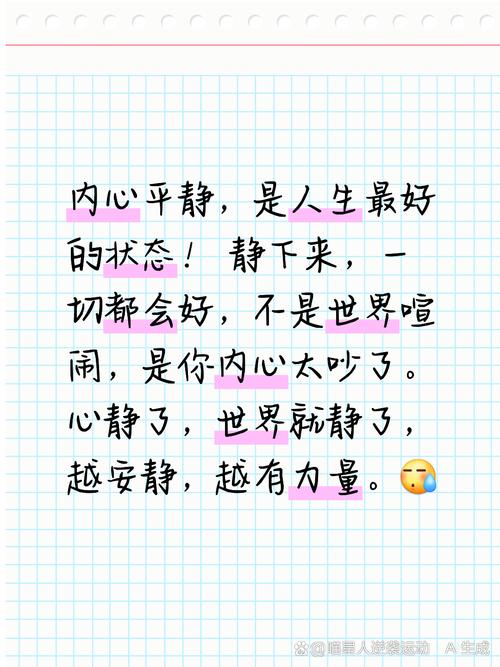 内心平静，是人生最好
的状态！静下来，一
切都会好，不是世界喧
闹，是你内心太吵了。
心静了，世界就静了，
越安静，越有力量。😮‍💨
喵星人逆袭运动 AI生成